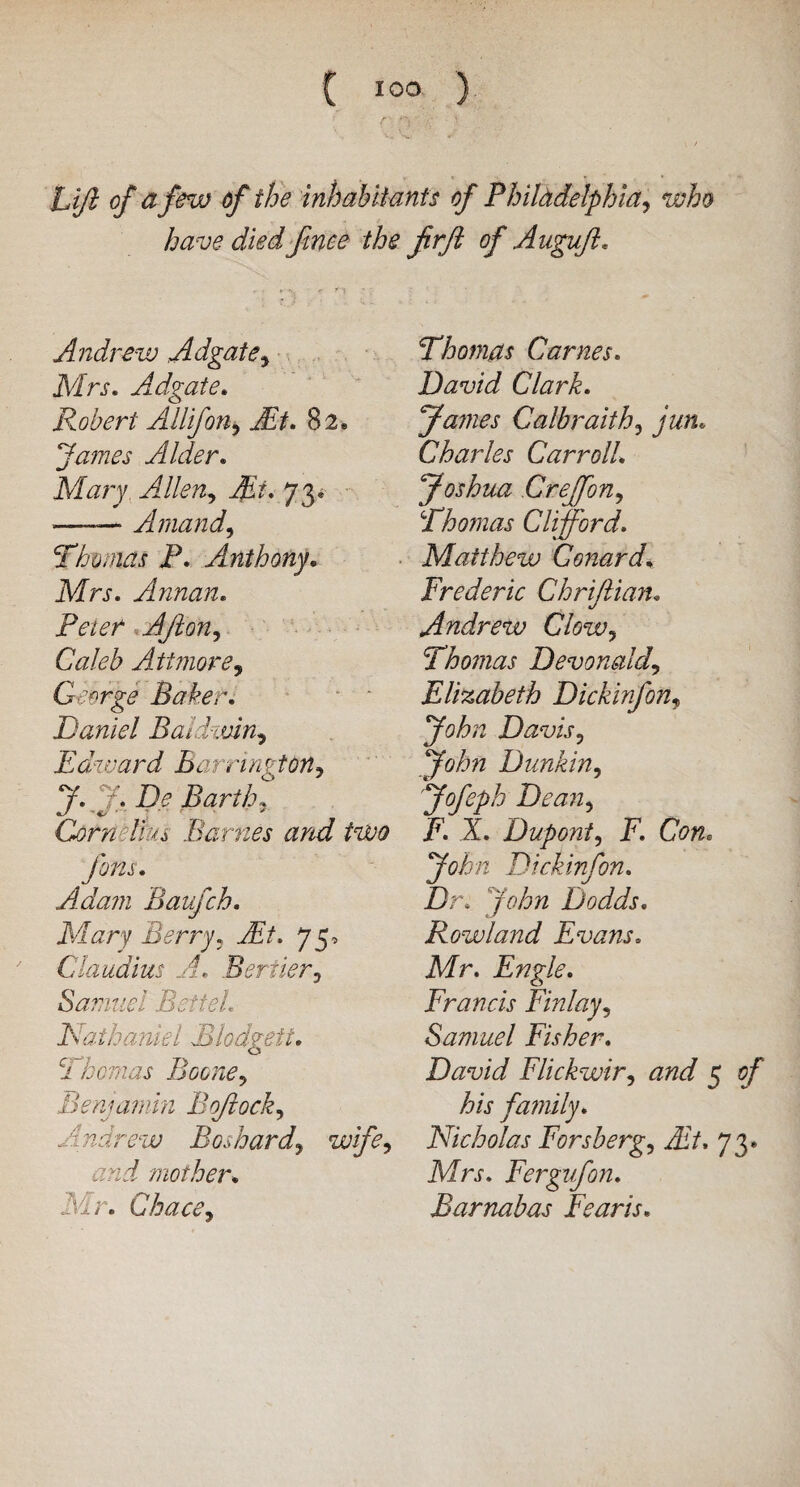 ( 100 )
Liſt of a few of the inhabitants of Philadelphia, who
have died ſince the firſt of Auguſt.
Andrew Adgate,
Mrs. Adgate.
Robert Alliſon, Æt. 82.
James Alder.
Mary Allen, Æt. 73.
—— Amand,
Thomas P. Anthony.
Mrs. Annan.
Peter Aſton,
Caleb Attmore,
George Baker.
Daniel Baldwin,
Edward Barrington,
J. J. De Barth,
Cornelius Barnes and two
ſons.
Adam Bauſch.
Mary Berry, Æt. 75,
Claudius A. Bertier,
Samuel Bettel.
Nathaniel Blodgett.
Thomas Boone,
Benjamin Boſtock,
Andrew Boshard, wife,
and mother.
Mr. Chace,
Thomas Carnes.
David Clark.
James Calbraith, jun.
Charles Carroll.
Joshua Creſſon,
Thomas Clifford.
Matthew Conard.
Frederic Chriſtian.
Andrew Clow,
Thomas Devonald,
Elizabeth Dickinſon,
John Davis,
John Dunkin,
Joſeph Dean,
F. X. Dupont, F. Con.
John Dickinſon.
Dr. John Dodds.
Rowland Evans.
Mr. Engle.
Francis Finlay,
Samuel Fisher.
David Flickwir, and 5 of
his family.
Nicholas Forsberg, Æt. 73.
Mrs. Ferguſon.
Barnabas Fearis.